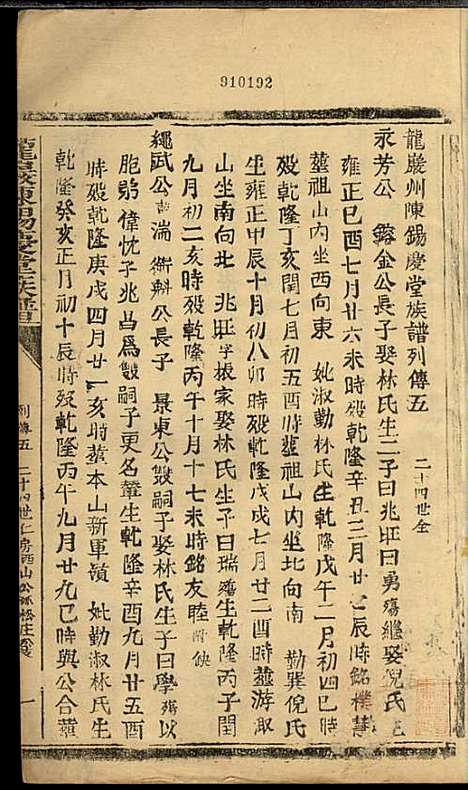 910192
龍巖州陳錫慶堂族譜列傳五
二十四世仝
永芳公 鎔金公長子娶林氏生二子曰兆旺曰勇殤繼娶倪氏
雍正己酉七月廿六未時殁乾隆辛丑三月廿七辰時銘樸慧
塟祖山內坐西向東 妣淑勤林氏生乾隆戊午二月初四巳時
殁乾隆丁亥閏七月初五酉時塟祖山內坐北向南 勤巽倪氏
生雍正甲辰十月初八卯時殁乾隆戊戌七月廿二酉時塟游取
山坐南向北 兆旺字振家娶林氏生子曰瑞殤生乾隆丙子閏
九月初二亥時殁乾隆丙午十月十七未時銘友睦 附缺
繩武公 衡斟公長子 景東公毅嗣子娶林氏生子曰學殤以
胞弟偉忱子兆昌爲毅嗣子更名鞏生乾隆辛酉九月廿五酉
時殁乾隆庚戌四月廿一亥時塟本山新軍嶺 妣勤淑林氏生
乾隆癸亥正月初十辰時殁乾隆丙午九月廿九巳時與公合塟
龍巖陳錫慶堂族譜
列傳五 二十四世仁房西山公派
一